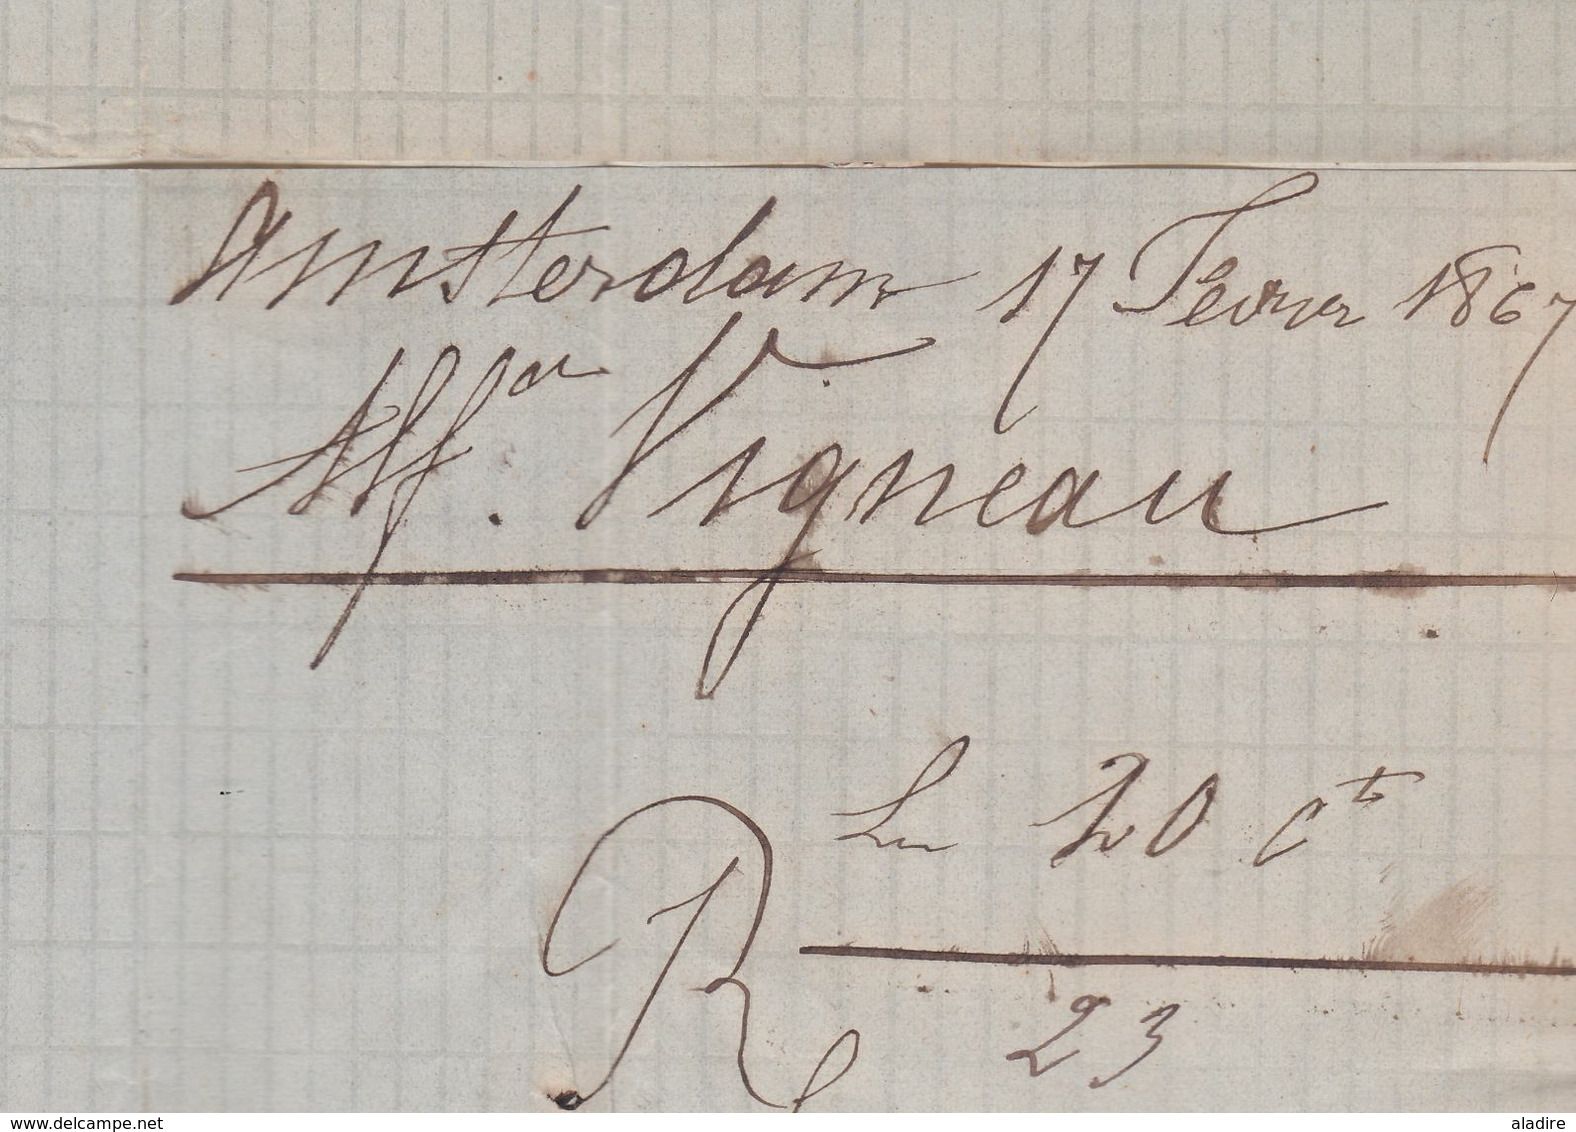 Amsterdam 17 Fevrier 1867
Vigneau
20 cts
R
23
delcampe.net
aladire